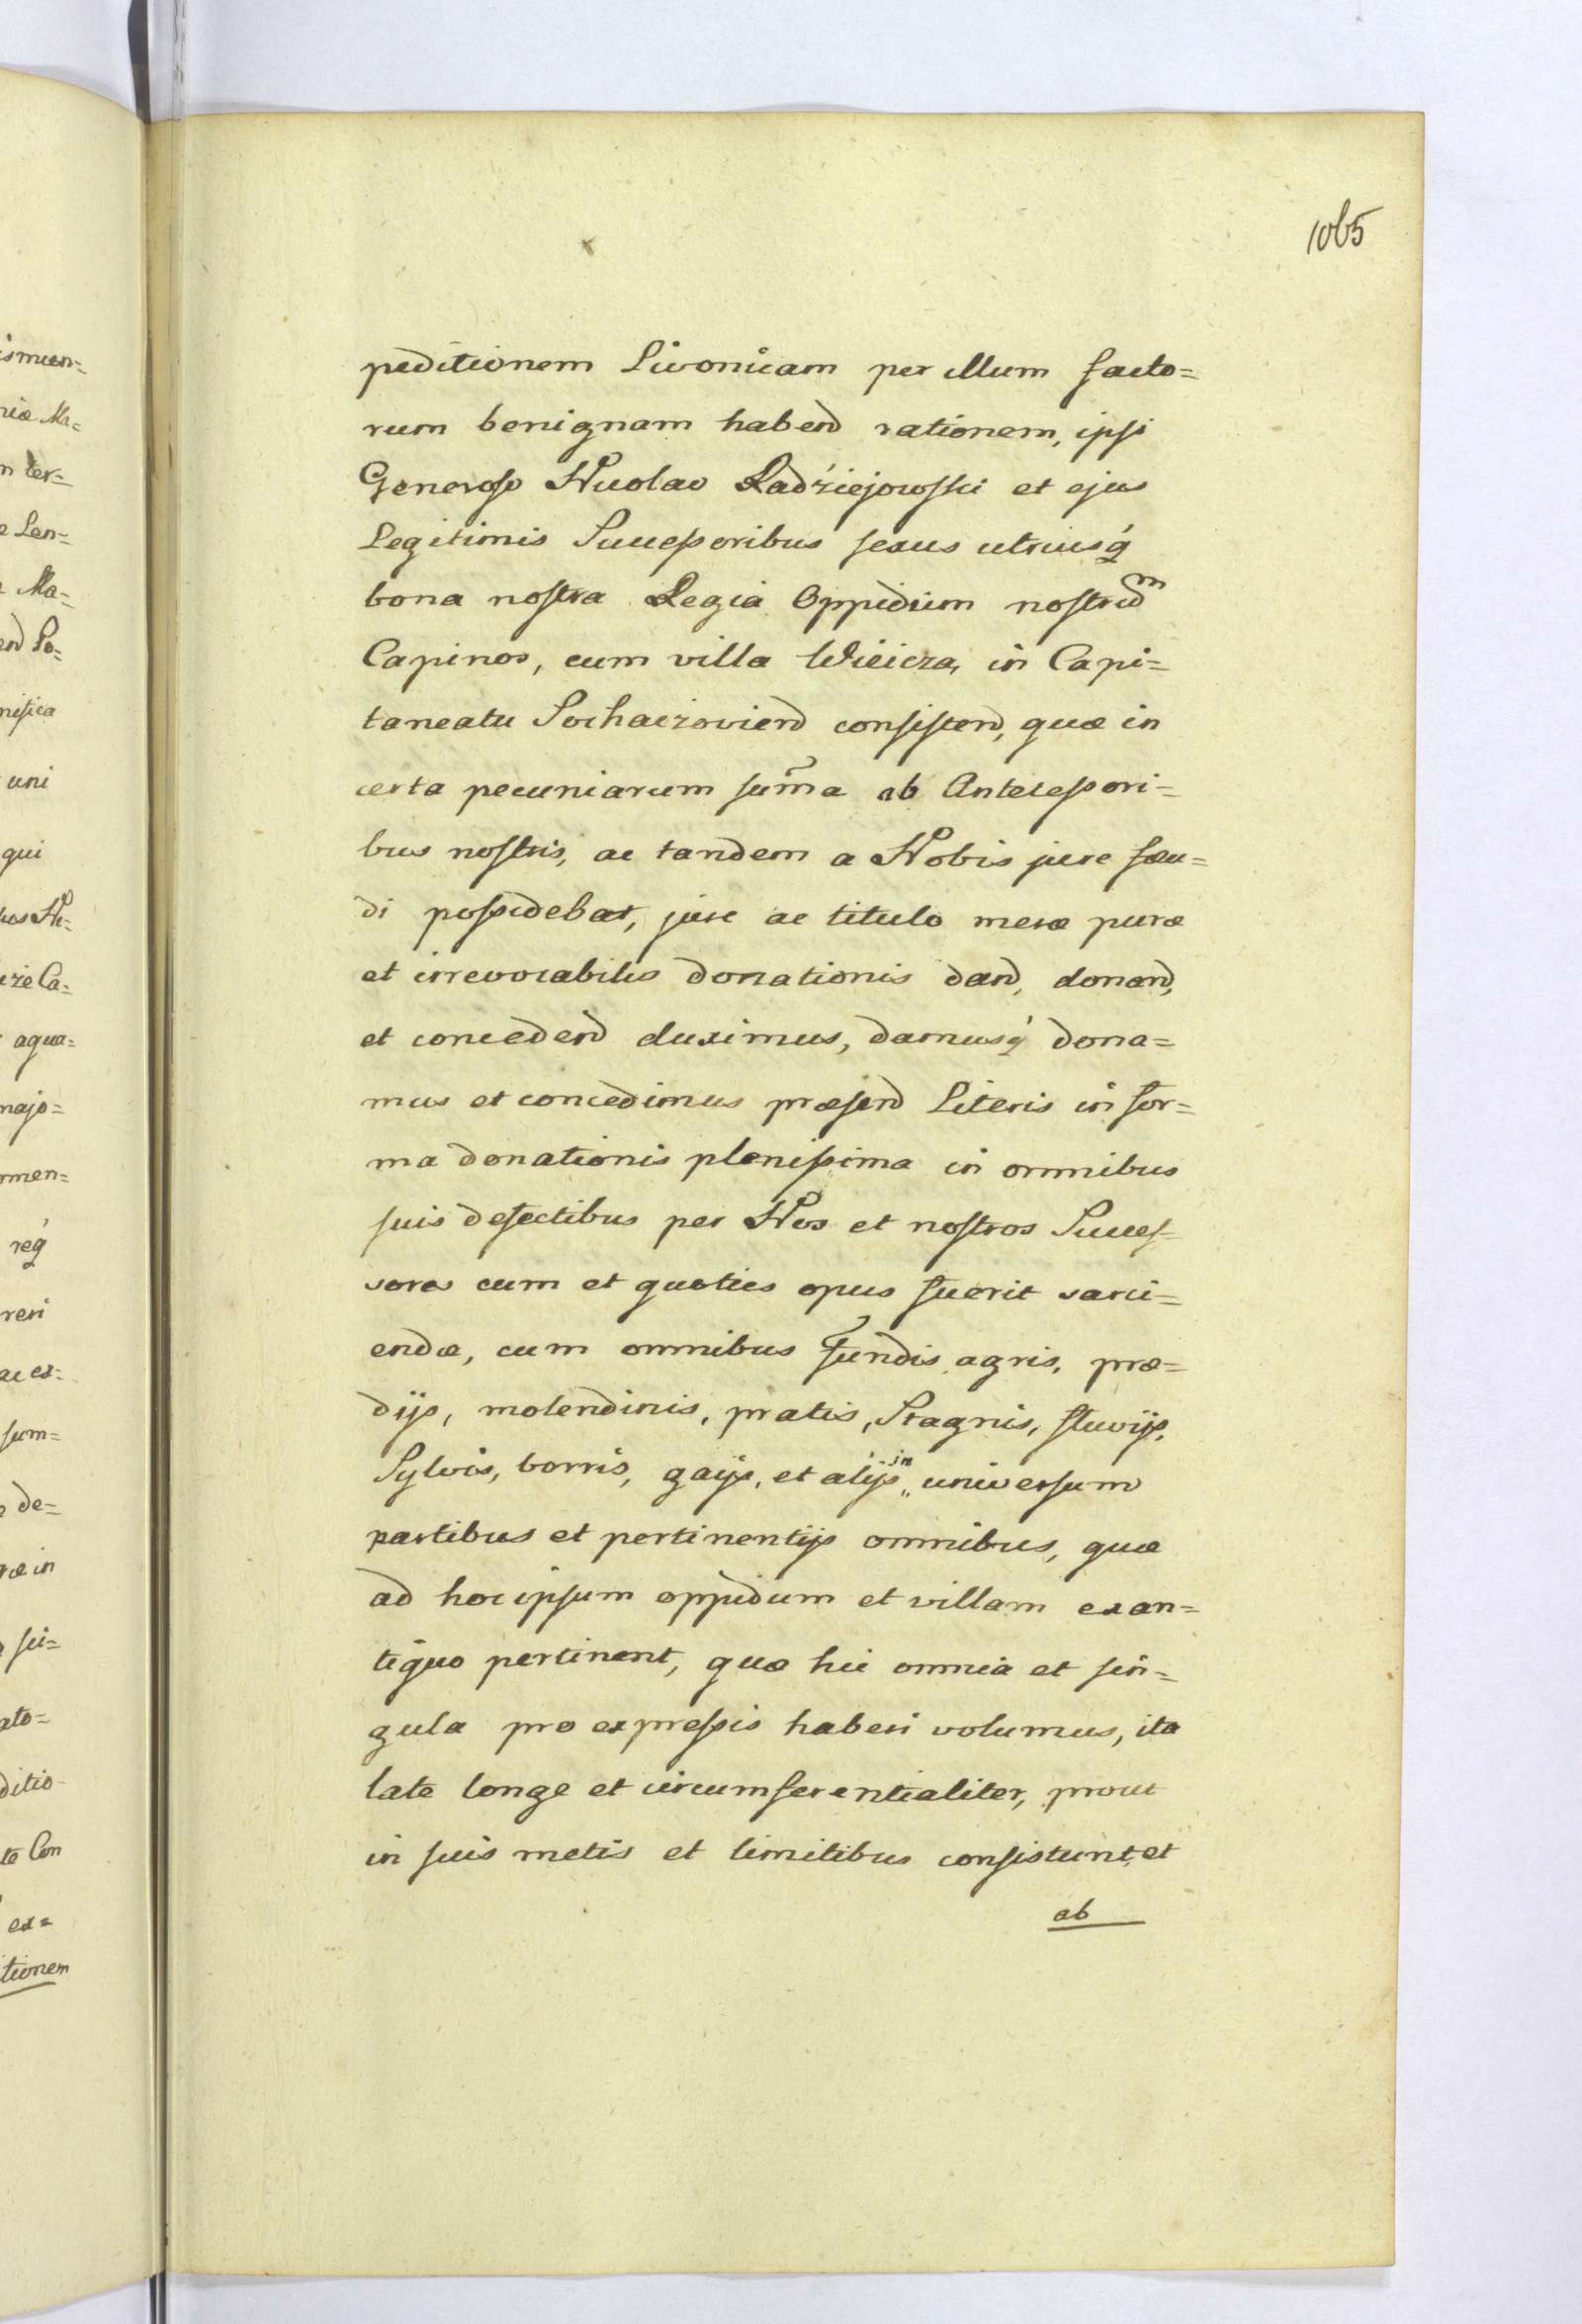 1065
peditionem Livonicam per illum facto=
rum benignam habend rationem, ipsi
Generoso Nicolao Radźiejowski et ejus
Legitimis Successoribus sexus utriusq́
bona nostra Regia Oppidum nostrum
Capinos, cum villa Wieicza, in Capi=
taneatu Sochaczoviend consistend, quæ in
certa pecuniarum sum̃a ab Antecessori=
bus nostris, ac tandem a Nobis jure feu=
di possidebat, jure ac titulo meræ puræ
et irrevocabilis donationis dand, donand,
et concedend duximus, damusq́ dona=
mus et concedimus præsend Literis in for=
ma donationis plenissima in omnibus
suis defectibus per Nos et nostros Succes=
sores cum et quoties opus fuerit sarci=
endæ, cum omnibus fundis agris, præ=
dijs, molendinis, pratis, Stagnis, fluvijs,
Sylvis, borris, gaijs, et alijs in universum
partibus et pertinentijs omnibus, quæ
ad hoc ipsum oppidum et villam exan=
tiquo pertinent, quæ hic omnia et sin=
gula pro expressis haberi volumus, ita
late longe et circumferentialiter, prout
in suis metis et limitibus consistunt, et
ab
ismun=
niæ Ma=
n ter=
e Len=
Ma=
end Po=
nifica
uni
qui
uos Ni=
Ca=
aqua=
majo=
men=
req́
reri
ac ex=
sum=
de=
ræ in
su=
ato=
ditio
te Con
ex=
tionem